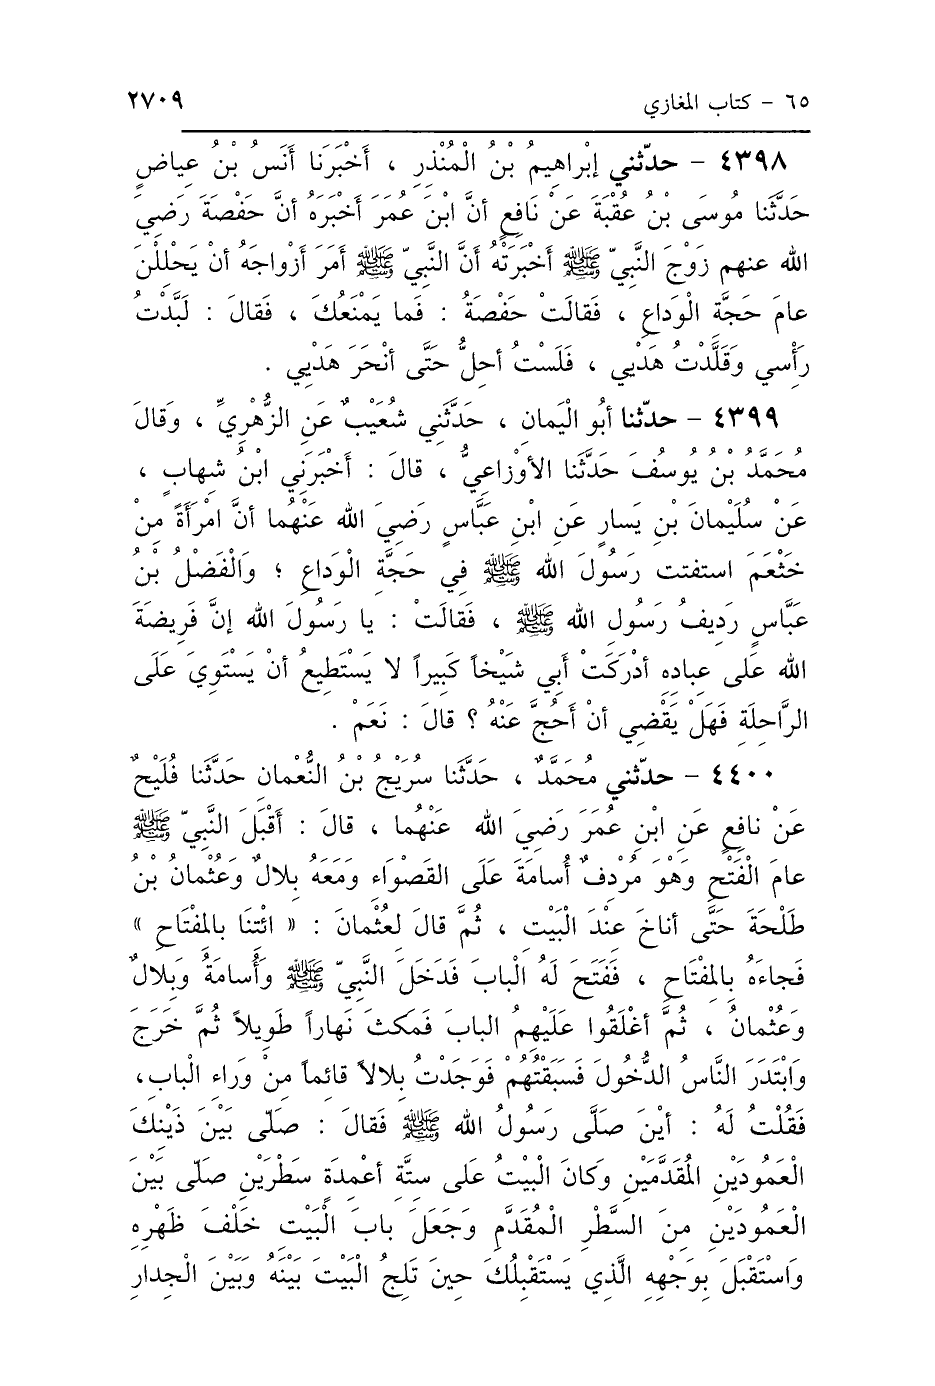 ٦٥ – كتاب المغازي ٢٧٠٩
٤٣٩٨ – حدّثني إبْراهِيمُ بْنُ الْمُنْذِرِ ، أَخْبَرَنا أَنَسُ بْنُ عِياضٍ
حَدَّثَنا مُوسَى بْنُ عُقْبَةَ عَنْ نَافِعٍ أنَّ ابْنَ عُمَرَ أخْبَرَهُ أنَّ حَفْصَةَ رَضِيَ
الله عنهم زَوْجَ النَّبِيّ ﷺ أخْبَرَتْهُ أنَّ النَّبِيّ ﷺ أمَرَ أزْواجَهُ أنْ يَحْلِلْنَ
عامَ حَجَّةِ الْوَداعِ ، فَقالَتْ حَفْصَةُ : فَما يَمْنَعُكَ ، فَقالَ : لَبَّدْتُ
رَأْسي وَقَلَّدْتُ هَدْيِي ، فَلَسْتُ أحِلُّ حَتَّى أنْحَرَ هَدْيِي .
٤٣٩٩ – حدّثنا أبُو الْيَمانِ ، حَدَّثَنِي شُعَيْبٌ عَنِ الزُّهْرِيِّ ، وَقالَ
مُحَمَّدُ بْنُ يُوسُفَ حَدَّثَنَا الأوْزاعِيُّ ، قالَ : أخْبَرَنِي ابْنُ شِهابٍ ،
عَنْ سُلَيْمانَ بْنِ يَسارٍ عَنِ ابْنِ عَبَّاسٍ رَضِيَ الله عَنْهُما أنَّ امْرَأَةً مِنْ
خَثْعَمَ استفتت رَسُولَ الله ﷺ فِي حَجَّةِ الْوَداعِ ؛ وَالْفَضْلُ بْنُ
عَبَّاسٍ رَدِيفُ رَسُولِ الله ﷺ ، فَقالَتْ : يا رَسُولَ الله إنَّ فَرِيضَةَ
الله عَلَى عِبادِهِ أدْرَكَتْ أبِي شَيْخاً كَبِيراً لا يَسْتَطِيعُ أنْ يَسْتَوِيَ عَلَى
الرَّاحِلَةِ فَهَلْ يَقْضِي أنْ أَحُجَّ عَنْهُ ؟ قالَ : نَعَمْ .
٤٤٠٠ – حدّثني مُحَمَّدٌ ، حَدَّثَنا سُرَيْجُ بْنُ النُّعْمانِ حَدَّثَنا فُلَيْحٌ
عَنْ نافِعٍ عَنِ ابْنِ عُمَرَ رَضِيَ الله عَنْهُما ، قالَ : أَقْبَلَ النَّبِيّ ﷺ
عامَ الْفَتْحِ وَهْوَ مُرْدِفٌ أُسامَةَ عَلَى القَصْوَاءِ وَمَعَهُ بِلالٌ وَعُثْمانُ بْنُ
طَلْحَةَ حَتَّى أناخَ عِنْدَ الْبَيْتِ ، ثُمَّ قالَ لِعُثْمانَ : « ائْتِنَا بالمِفْتَاحِ »
فَجاءَهُ بِالمِفْتَاحِ ، فَفَتَحَ لَهُ الْبابَ فَدَخَلَ النَّبِيّ ﷺ وَأُسامَةُ وَبِلالٌ
وَعُثْمانُ ، ثُمَّ أغْلَقُوا عَلَيْهِمُ البابَ فَمَكثَ نَهاراً طَوِيلاً ثُمَّ خَرَجَ
وَابْتَدَرَ النَّاسُ الدُّخُولَ فَسَبَقْتُهُمْ فَوَجَدْتُ بِلالاً قائماً مِنْ وَراءِ الْبابِ،
فَقُلْتُ لَهُ : أيْنَ صَلَّى رَسُولُ الله ﷺ فَقالَ : صَلّى بَيْنَ ذَيْنِكَ
الْعَمُودَيْنِ المُقَدَّمَيْنِ وَكانَ الْبَيْتُ عَلى سِتَّةِ أعْمِدَةٍ سَطْرَيْنِ صَلّى بَيْنَ
الْعَمُودَيْنِ مِنَ السَّطْرِ الْمُقَدَّمِ وَجَعَلَ بابَ الْبَيْتِ خَلْفَ ظَهْرِهِ
وَاسْتَقْبَلَ بِوَجْهِهِ الَّذِي يَسْتَقْبِلُكَ حِينَ تَلِجُ الْبَيْتَ بَيْنَهُ وَبَيْنَ الْجِدارِ